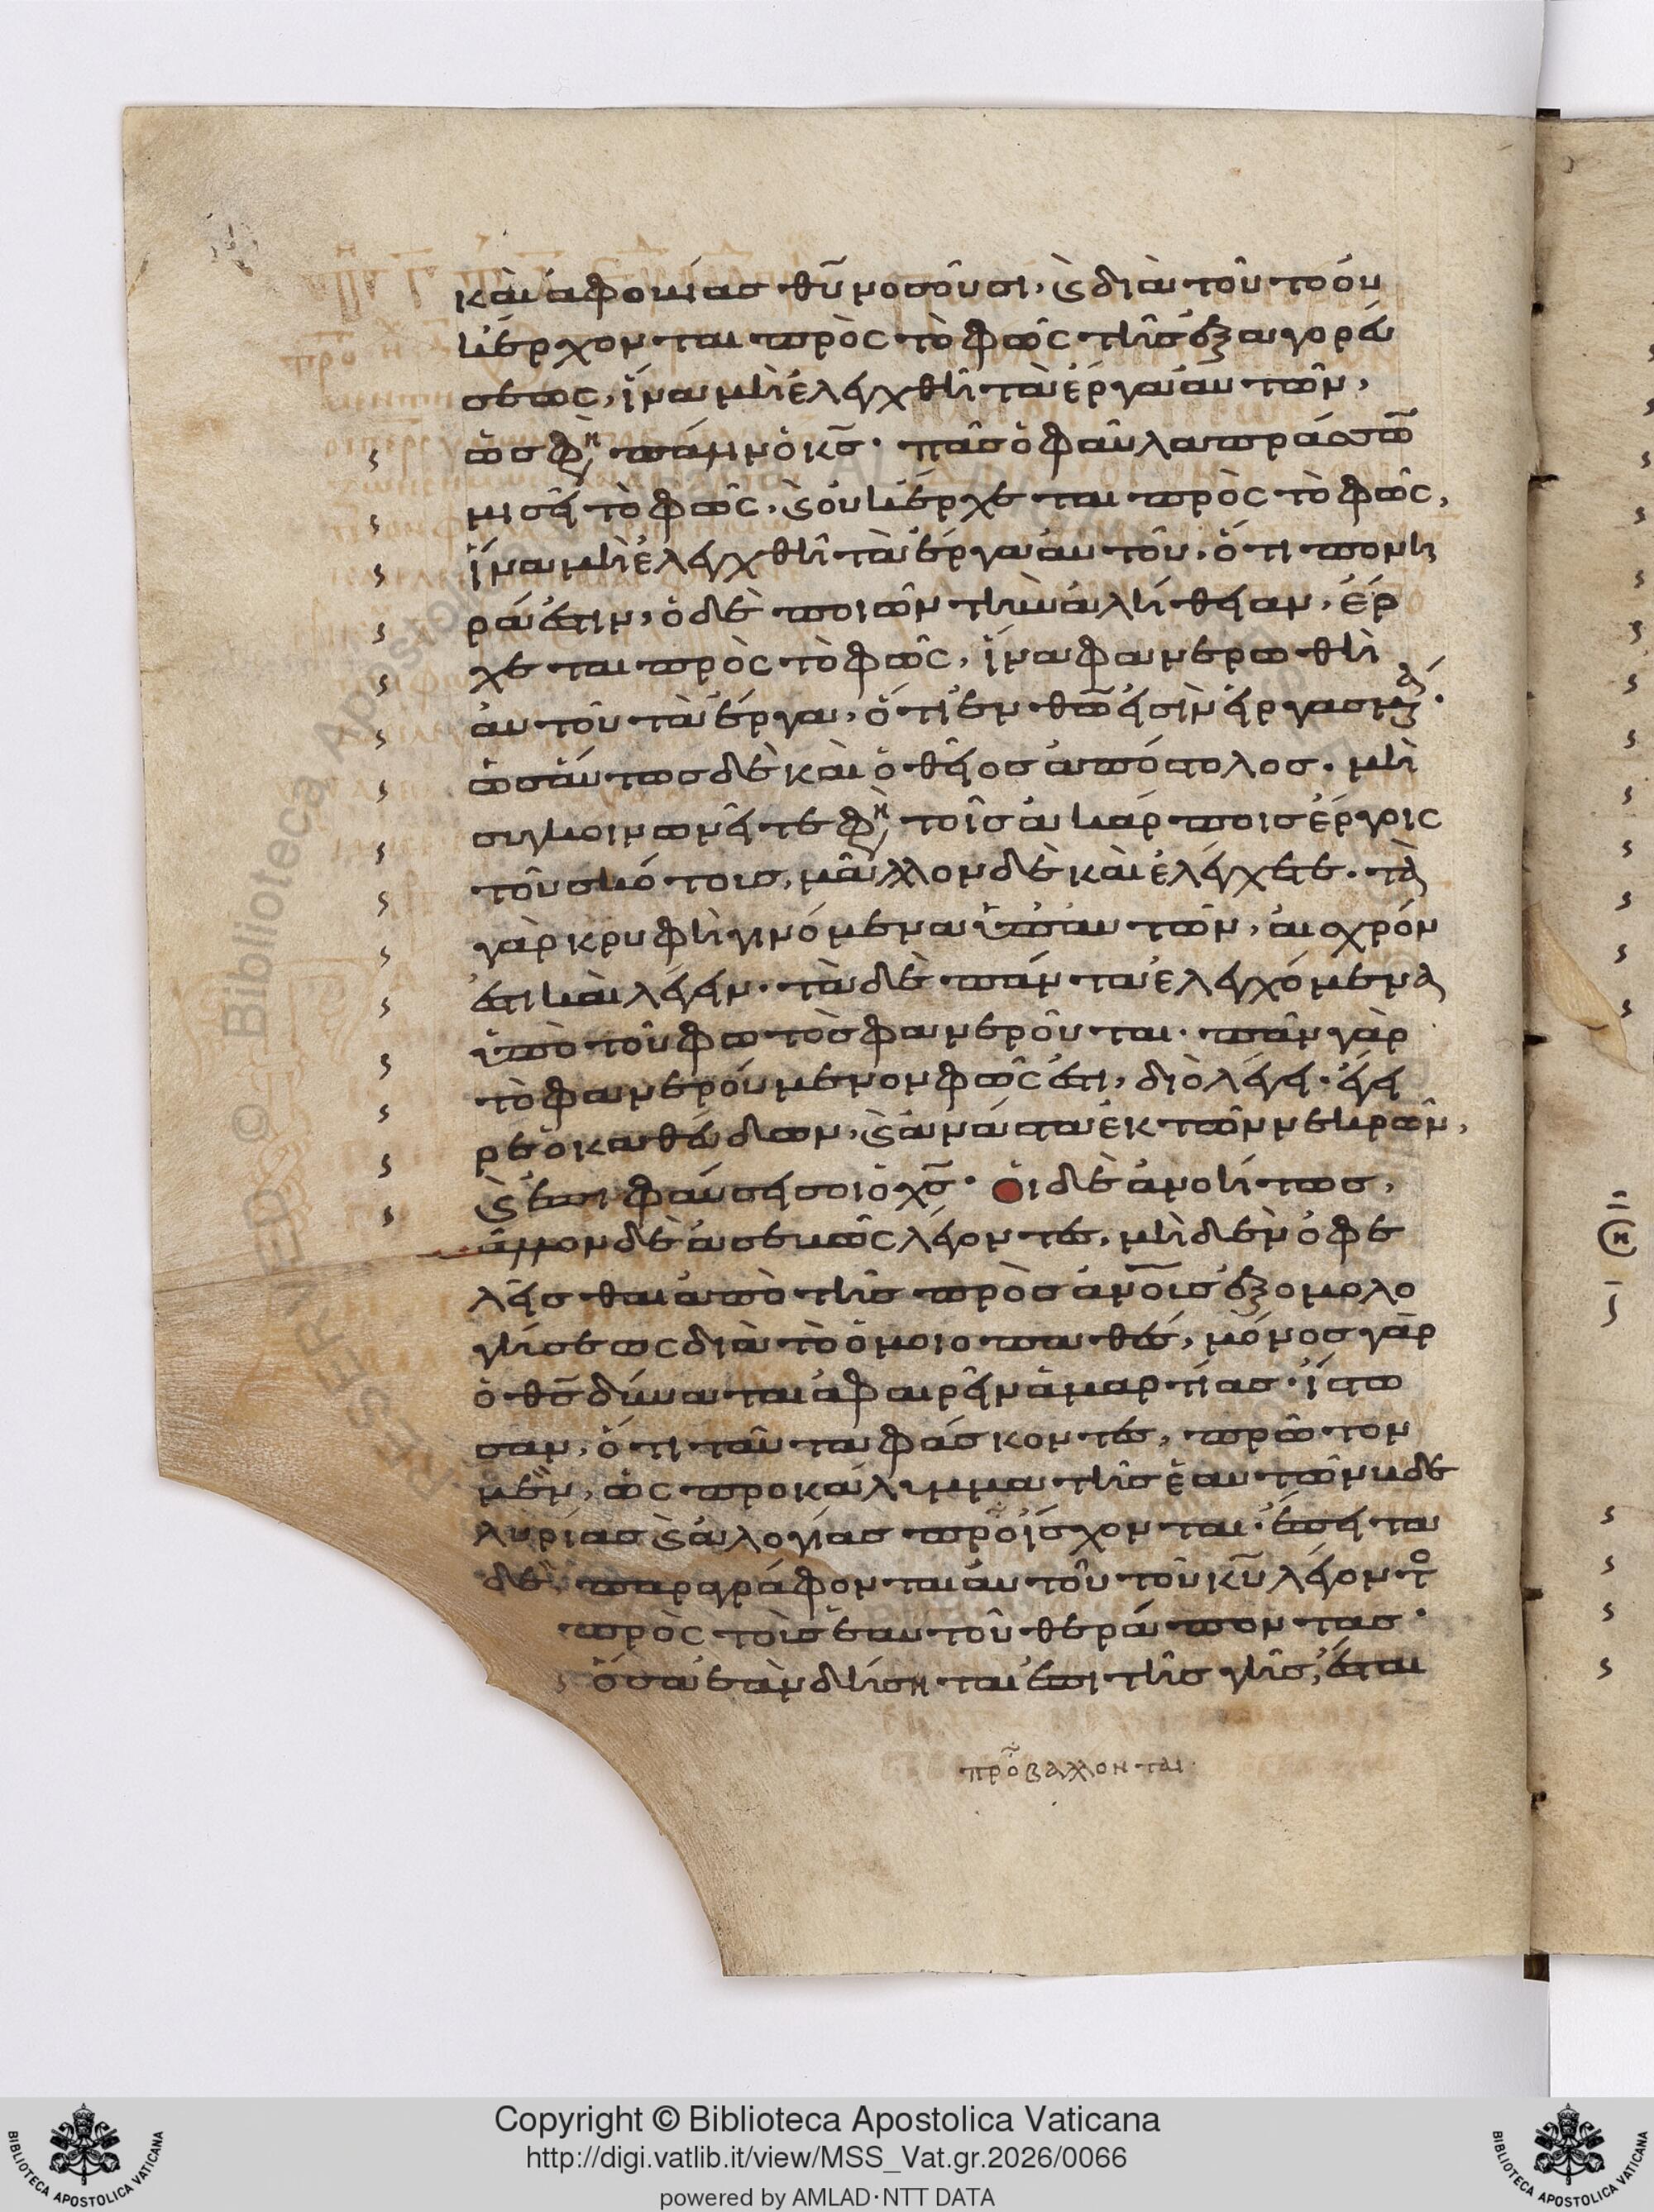 καὶ ἀφορμίας θῡ μοσοῦσι, ϗ διὰ τοῦτο οὐ
κ έρχονται πρὸς τὸ φῶς τῆς ἐξαγορεύ
σεως, ἵνα μὴ ἐλεγχθῆ τὰ ἔργα αὐτῶν,
ὥς φη πάλιν ὁ κς̄· πᾶς ὁ φαῦλα πράσσω̄
μισεῖ τὸ φῶς, ϗ οὐκ έρχεται πρὸς τὸ φῶς,
ἵνα μὴ ἐλεγχθῆ τὰ ἔργα αὐτοῦ, ὅτι πονη
ρά ἐστιν, ὁ δὲ ποιῶν τὴν ἀλήθειαν, ἔρ
χεται πρὸς τὸ φῶς, ἵνα φανερωθῆ
αὐτοῦ τὰ ἔργα, ὅτι ἐν θω̄ εἰσὶν εἰργασμένα·
ὡσαύτως δὲ καὶ ὁ θεῖος ἀπόστολος. μὴ
συγκοινωνεῖτε φη τοῖς ἀκάρποις ἔργοις
τοῦ σκότους, μᾶλλον δὲ καὶ ἐλέγχετε. τὰ
γὰρ κρυφῆ γινόμενα ὑπ' αὐτῶν, αἰσχρόν
ἐστι καὶ λέγειν· τὰ δὲ πάντα ἐλεγχόμενα
ὑπὸ τοῦ φωτὸς φανεροῦται· πᾶν γὰρ
τὸ φανερούμενον φῶς ἐστι, διὸ λέγει· ἔγει
ρε ὁ καθεύδων, ϗ ἀνάστα ἐκ τῶν νεκρῶν,
ϗ ἐπιφαύσει σοι ὁ χς̄· Οἱ δὲ ἀνοήτως,
μᾶλλον δὲ ἀσεβῶς λέγοντες, μηδὲν ὀφε
λεῖσθαι ἀπὸ τῆς πρὸς ἀνο̄υς ἐξομολο
γήσεως διὰ τὸ ὁμοιοπαθές, μόνος γὰρ
ὁ θς̄ δύναται ἀφαιρεῖν ἁμαρτίας· ἴστω
σαν, ὅτι ταῦτα φάσκοντες, πρῶτον
μὲν, ὡς προκάλυμμα τῆς ἑαυτῶν βδε
λυρίας ϗ ἀλογίας προΐσχονται· ἔπειτα
δὲ, παραγράφονται αὐτοῦ τοῦ κῡ λέγοντο
πρὸς τοὺς ἑαυτοῦ θεράποντας·
ὅσα ἐὰν δήσηται ἐπὶ τῆς γῆς, ἔσται
προβάλλονται·
© Biblioteca Apostolica Vaticana
RESERVED
Copyright © Biblioteca Apostolica Vaticana
http://digi.vatlib.it/view/MSS_Vat.gr.2026/0066
powered by AMLAD·NTT DATA
BIBLIOTECA APOSTOLICA VATICANA
BIBLIOTECA APOSTOLICA VATICANA